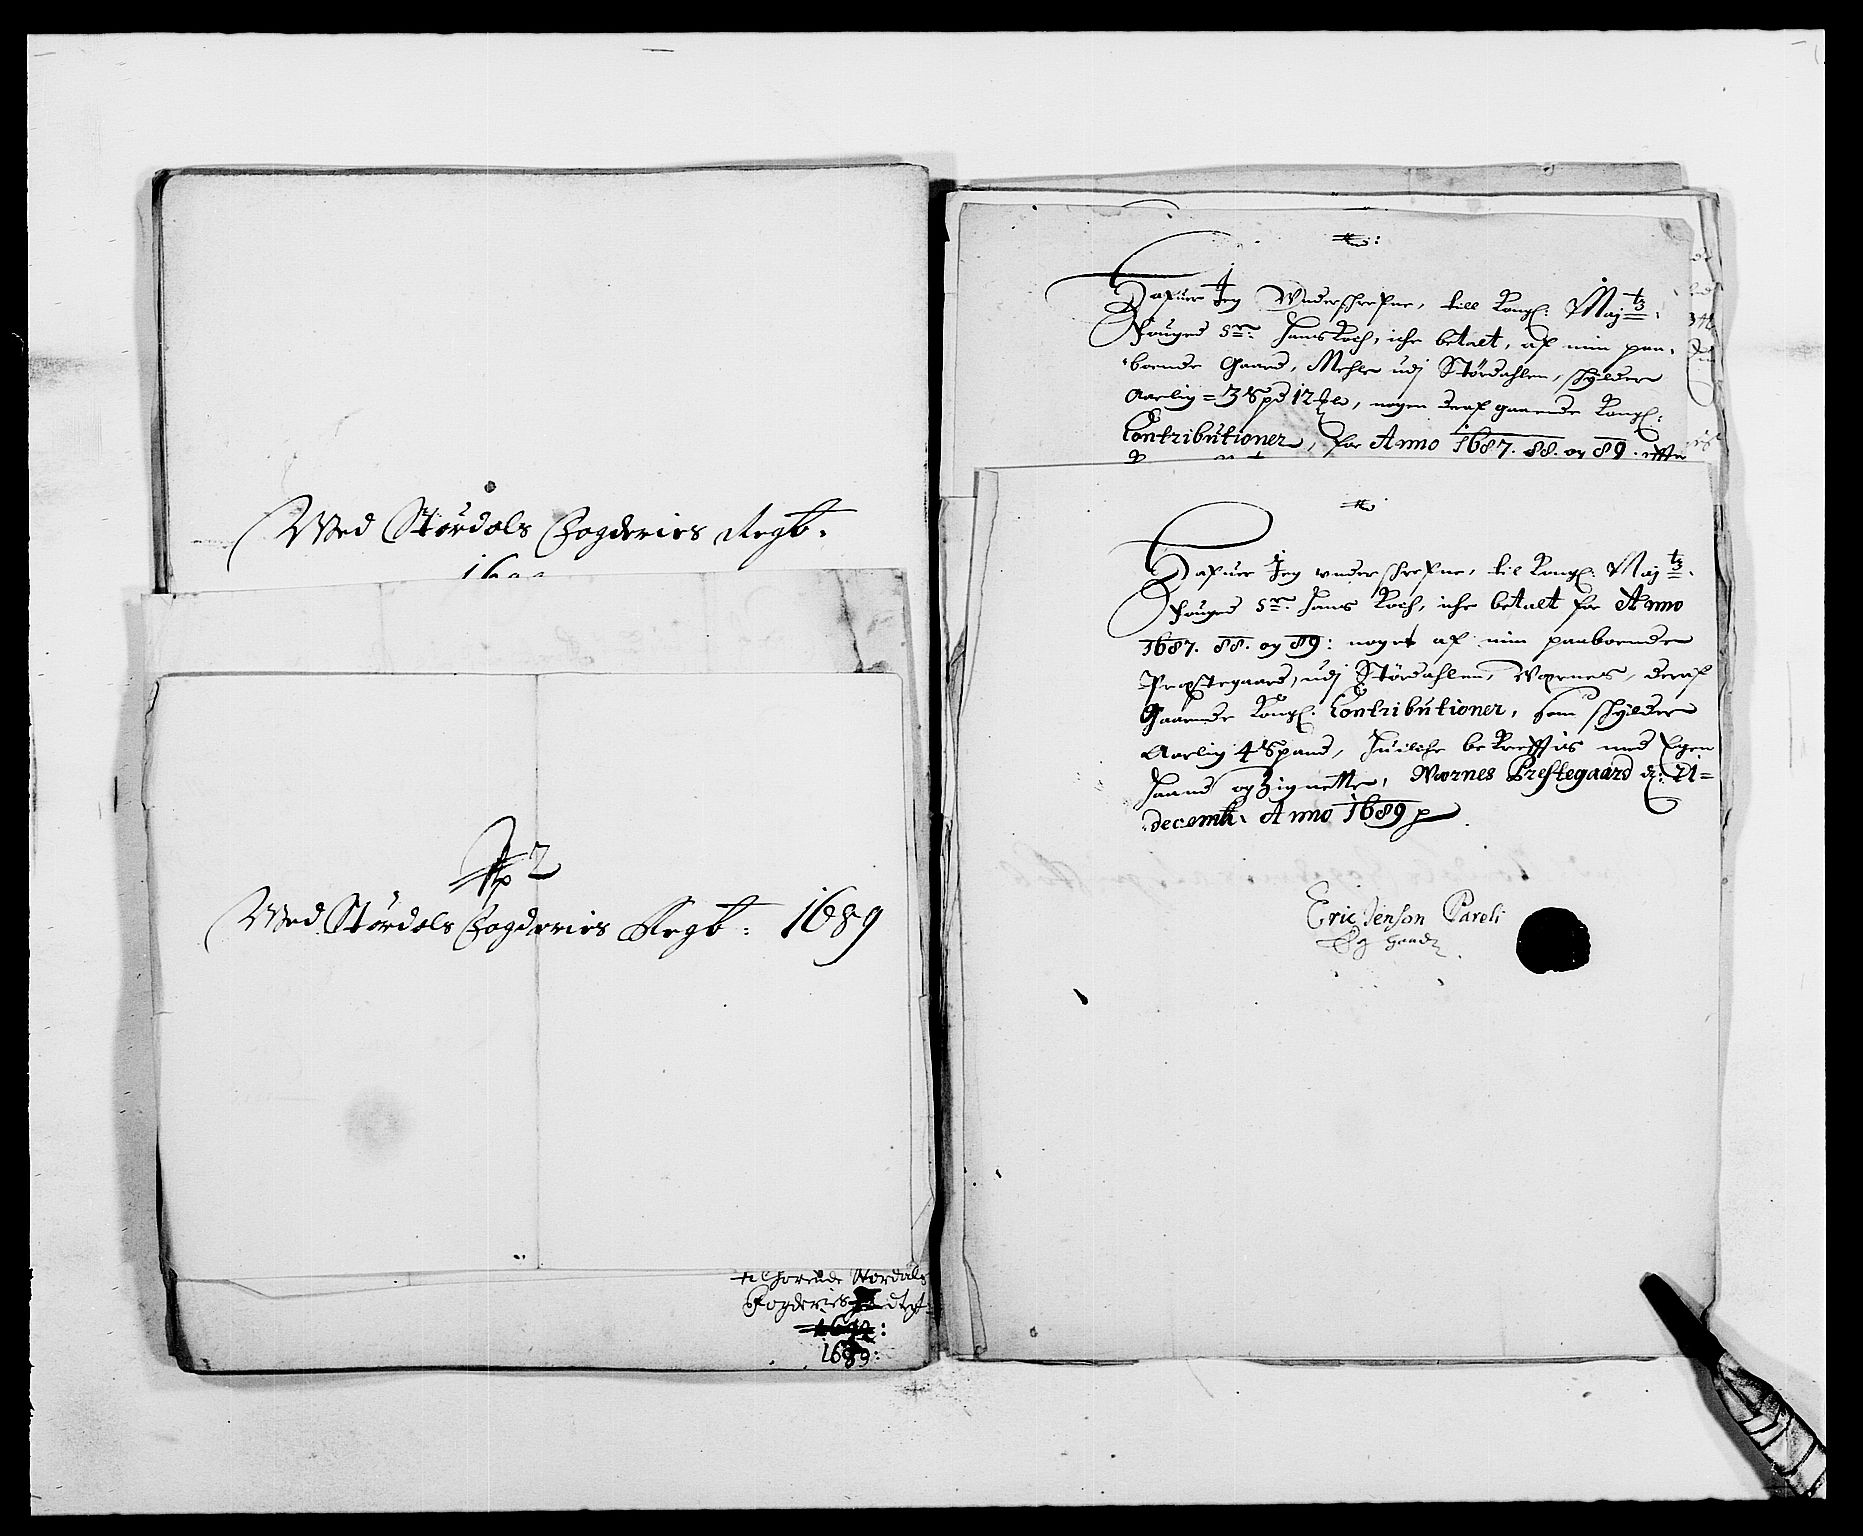 Med Stördals Fogderies Regb:
No 2
Med Stördals Fogderies Regb: 1689
tilhorende Stordals
Fogderies
1689:
No:
Hafuer Jeg Underschrefne, till Kongl: Maytz
Fouged Sr. Hans Koch, iche betalt, af min paa-
boende Gaard, Mehle udj Stördahlen, schylder
Aarlig = 3 Spd 12 , nogen deraf gaaende Kongl:
Contributioner, for Anno 1687. 88. og 89. effter
No
Hafuer Jeg underschrefne, til Kongl: Maytz
Fouged Sr. Hans Koch, iche betalt for Anno
1687. 88. og 89: noget af min paaboende
Præstegaard, udj Stördahlen, Værnes, deraf
Gaaende Kongl: Contributioner, som schylder
Aarlig 4 Spand, huilche bekrefftis med Egen
Haand og Zignette, Wærnes Prestegaard d: 21
decemb. Anno 1689
Eric Jenson Pareli
Eg haand